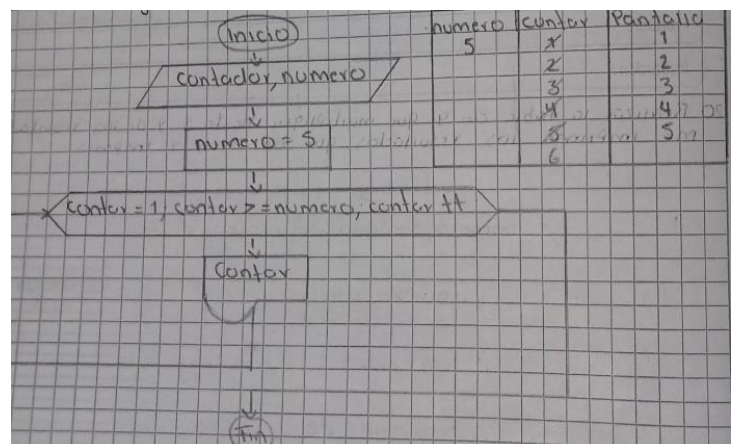 Inicio
contador, numero
numero = 5
contar = 1, contar >= numero, contar ++
Contar
Fin
numero contar Pantalla
5 1 1
2 2
3 3
4 4
5 5
6